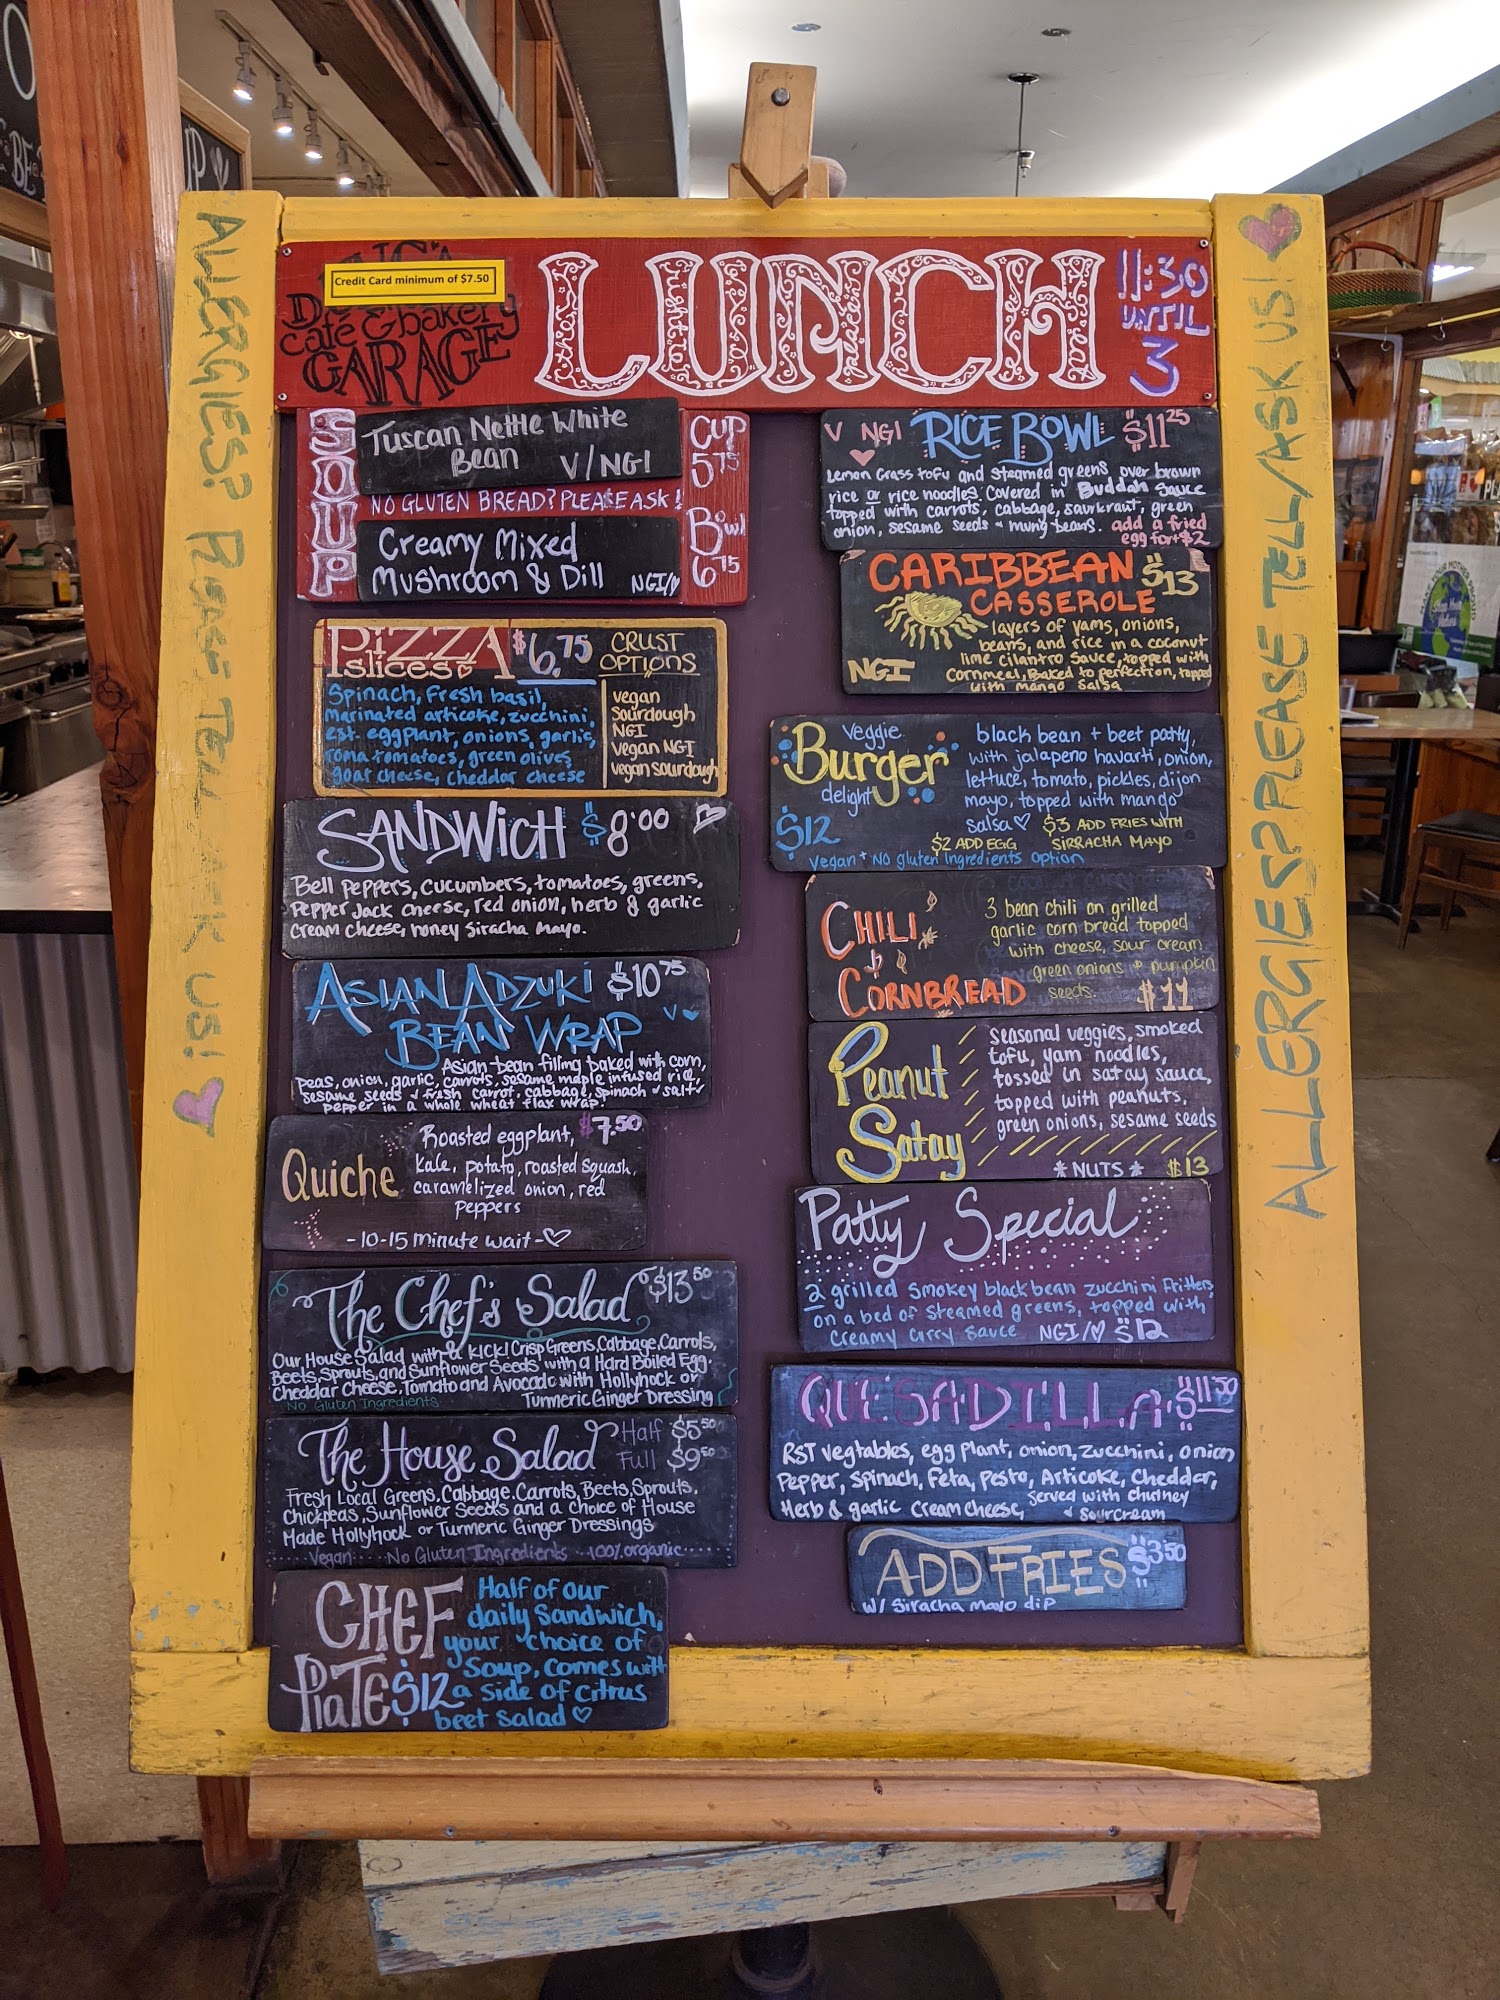 Credit Card minimum of $7.50
café & bakery
GARAGE
LUNCH
11:30
UNTIL
3
ALLERGIES? PLEASE TELL/ASK US!
ALLERGIES? PLEASE TELL/ASK US!
SOUP
Tuscan Nettle White
Bean V/NGI
NO GLUTEN BREAD? PLEASE ASK!
Creamy Mixed
Mushroom & Dill NGI/♡
CUP
5.75
Bowl
6.75
PIZZA
slices
$6.75
Spinach, fresh basil,
marinated articoke, zucchini,
est. eggplant, onions, garlic,
roma tomatoes, green olives,
goat cheese, cheddar cheese
CRUST
OPTIONS
vegan
Sourdough
NGI
Vegan NGI
Vegan sourdough
SANDWICH $8.00
Bell peppers, cucumbers, tomatoes, greens,
Pepper Jack cheese, red onion, herb & garlic
cream cheese, honey Siracha Mayo.
ASIAN ADZUKI $10.75
BEAN WRAP V
Asian-bean filling baked with corn,
peas, onion, garlic, carrots, sesame maple infused rice,
sesame seeds + fresh carrot, cabbage, spinach + salt +
pepper in a whole wheat flax wrap.
Quiche
Roasted eggplant, $7.50
Kale, potato, roasted squash,
caramelized onion, red
peppers
-10-15 minute wait-♡
The Chef's Salad $13.50
Our House Salad with a KICK! Crisp Greens, Cabbage, Carrots,
Beets, Sprouts, and Sunflower Seeds with a Hard Boiled Egg.
Cheddar Cheese, Tomato and Avocado with Hollyhock or
No Gluten Ingredients Turmeric Ginger Dressing
The House Salad
Half $5.50
Full $9.50
Fresh Local Greens, Cabbage, Carrots, Beets, Sprouts,
Chickpeas, Sunflower Seeds and a Choice of House
Made Hollyhock or Turmeric Ginger Dressings
Vegan No Gluten Ingredients 100% organic
CHEF
PLATE $12
Half of our
daily Sandwich,
your choice of
Soup, comes with
a side of citrus
beet salad ♡
V NGI RICE BOWL $11.25
Lemon Grass tofu and steamed greens over brown
rice or rice noodles. Covered in Buddah Sauce
topped with carrots, cabbage, saurkraut, green
onion, sesame seeds + mung beans. add a fried
egg for +$2
CARIBBEAN $13
CASSEROLE
layers of yams, onions,
beans, and rice in a coconut
lime cilantro sauce, topped with
NGI Cornmeal, Baked to perfection, topped
with mango salsa
Veggie
Burger
delight
$12
black bean + beet patty,
with jalapeno havarti, onion,
lettuce, tomato, pickles, dijon
mayo, topped with mango
salsa ♡ $3 ADD FRIES WITH
$2 ADD EGG SIRRACHA MAYO
Vegan + NO gluten Ingredients option
CHILI
CORNBREAD
3 bean chili on grilled
garlic corn bread topped
with cheese, sour cream
green onions + pumpkin
seeds. $11
Peanut
Satay
seasonal veggies, smoked
tofu, yam noodles,
tossed in satay sauce,
topped with peanuts,
green onions, sesame seeds
*NUTS* $13
Patty Special
2 grilled smokey black bean zucchini fritters
on a bed of steamed greens, topped with
creamy curry sauce NGI/♡ $12
QUESADILLA $11.50
RST vegtables, eggplant, onion, zucchini, onion
Pepper, spinach, Feta, Pesto, Articoke, cheddar,
Herb & garlic cream cheese, served with chutney
+ sour cream
ADD FRIES $3.50
w/ Siracha mayo dip